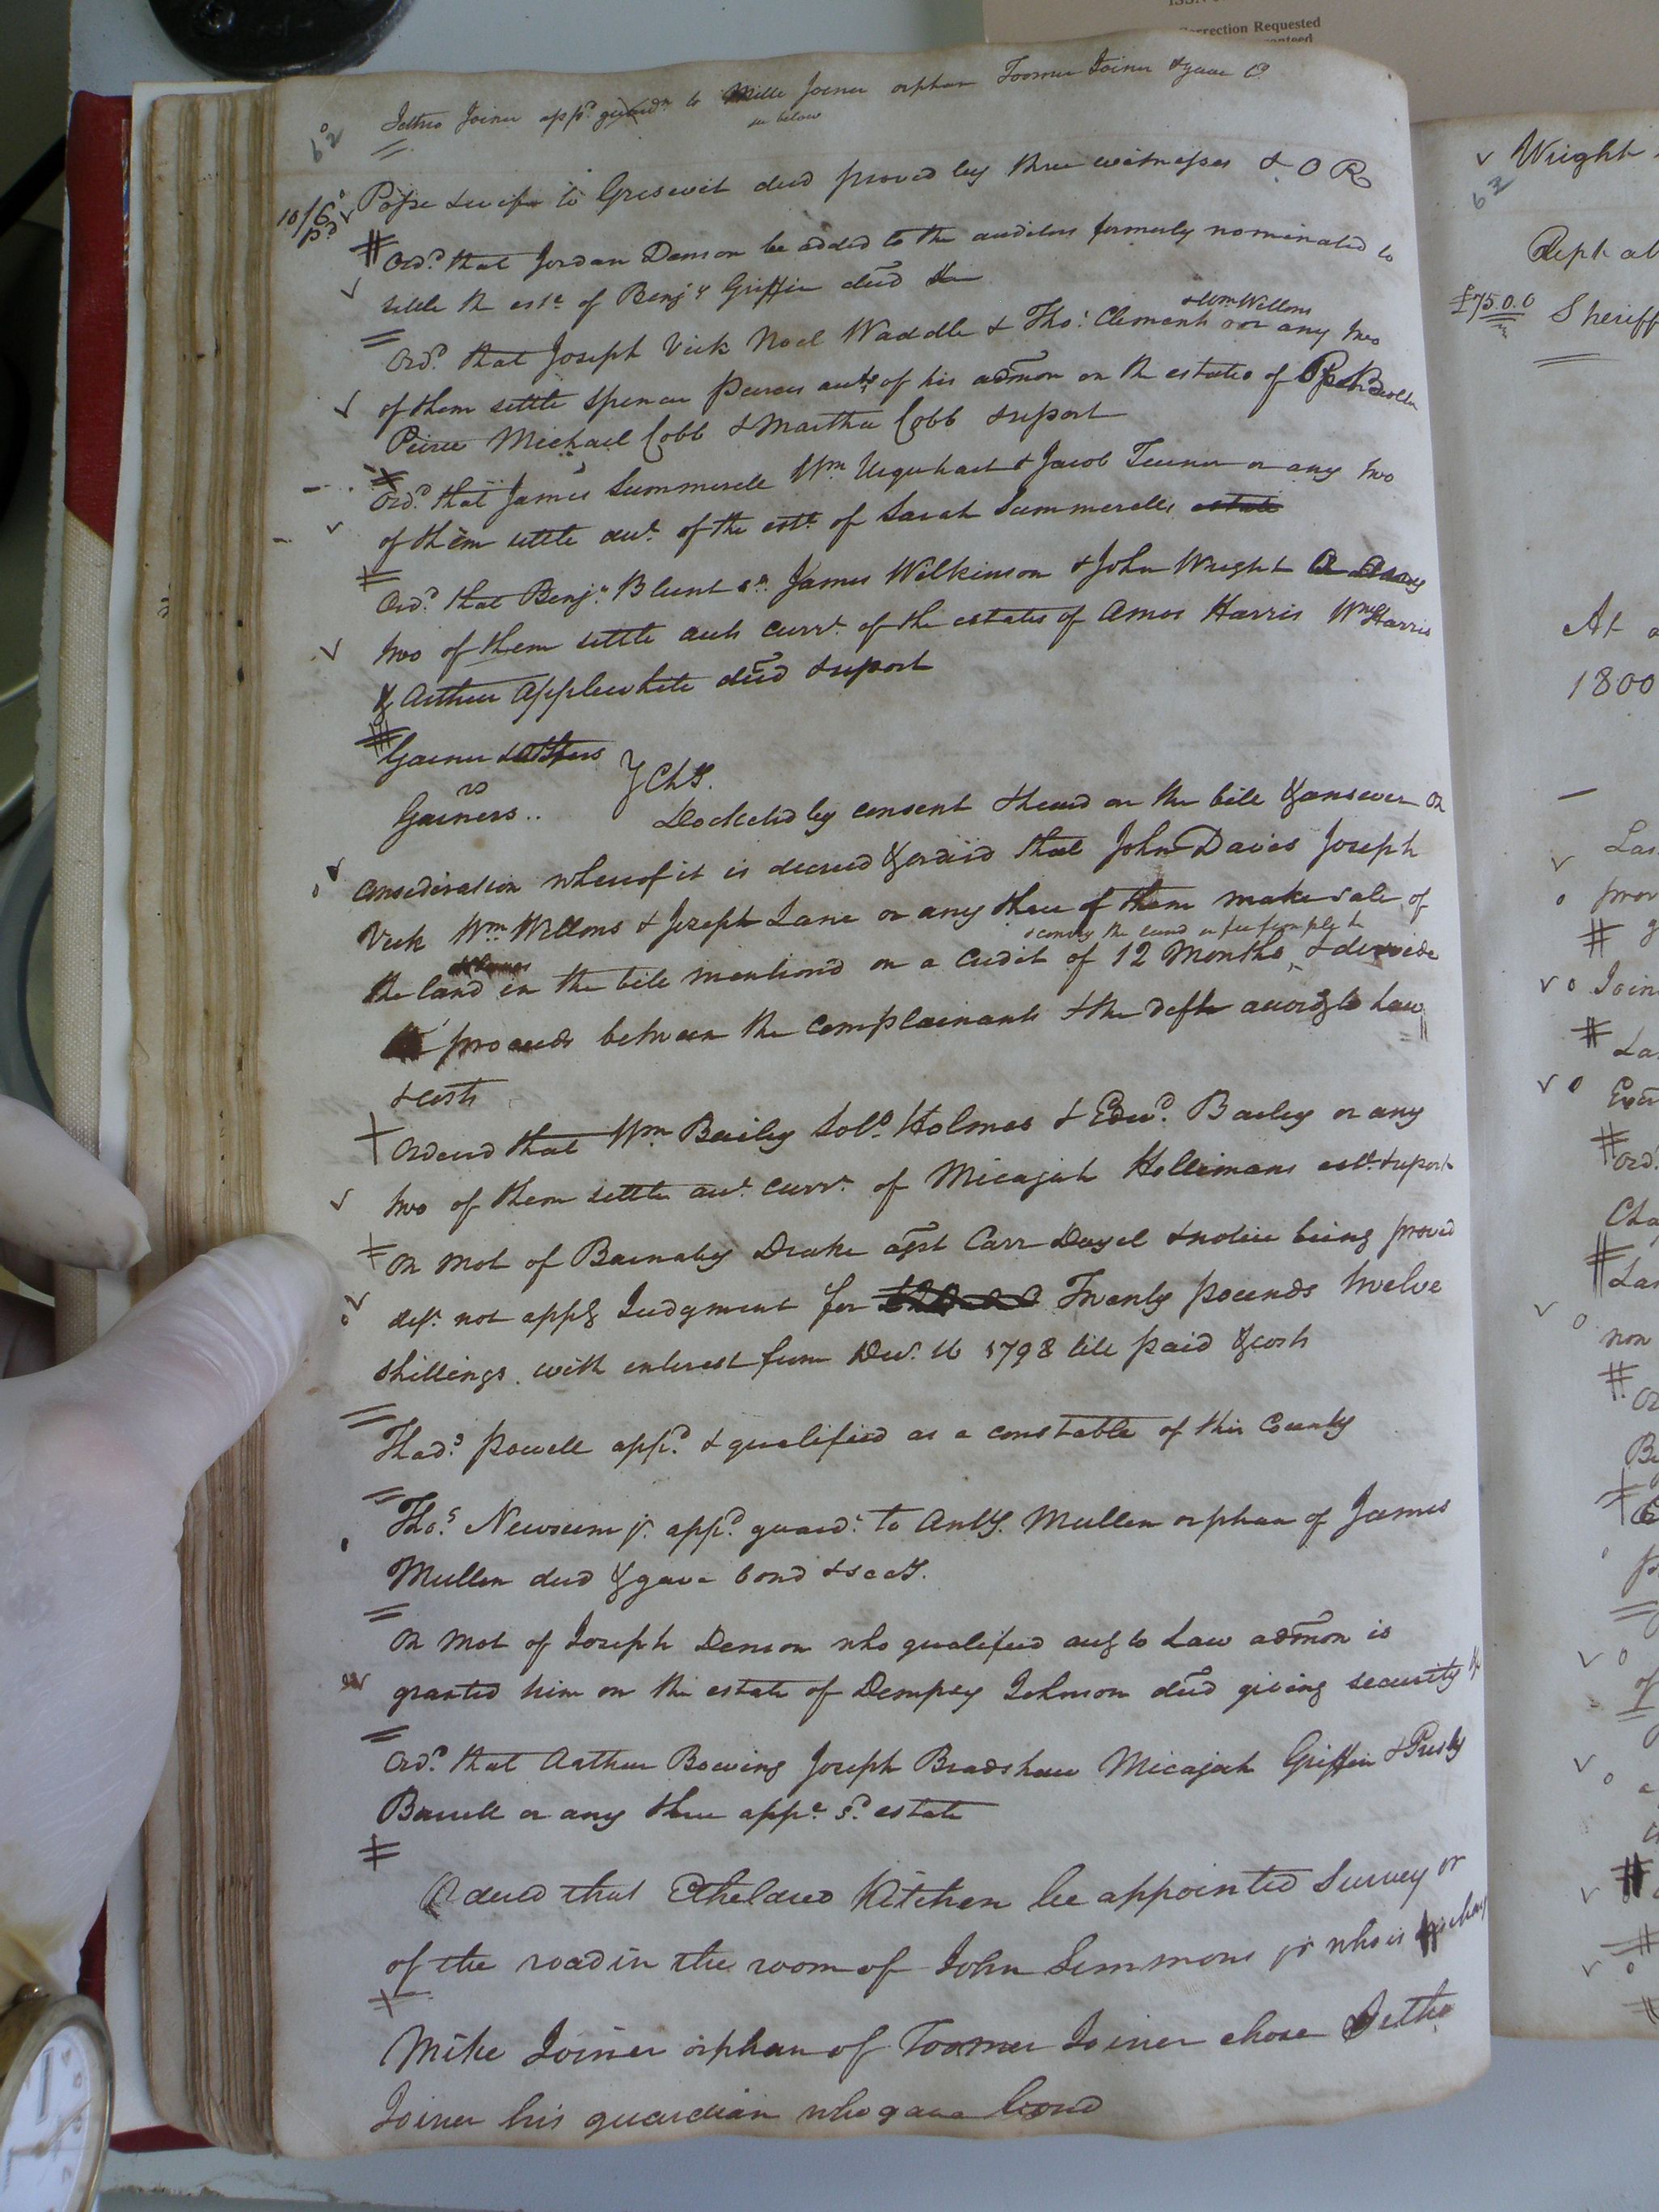 Jethro Joiner app.d guardn to Mille Joiner orphan Toomer Joiner & gave
see below
62
Pope & wife to Griswit deed proved by three witnesses & O R
10/6
pd
Ord.d that Jordan Denson be added to the auditors formerly nominated to
settle the este of Benj.a Griffin decd
& Wm Wellons
Ord.d that Joseph Vick Noel Waddle & Tho.s Clements or any two
of them settle Spencer Pearces aut.s of his admon on the estates of
Peirce Michael Cobb & Martha Cobb & report
Ord.d that James Summerell Wm Urquhart & Jacob Turner or any two
of them settle aut. of the est.e of Sarah Summerells estate
Ord.d that Benj.a Blunt sr. James Wilkinson & John Wright or any
two of them settle auts curr.t of the estates of Amos Harris Wm Harris
& Arthur Applewhite decd & report
Gainer & others
vs } Ch.y.
Gainers..
Docketed by consent & heard on the bill & answer on
consideration whereof it is decreed & ordered that John Davis Joseph
Vick Wm Wellons & Joseph Lane or any three of them make sale of
& convey the land in fee simple &
the land in the bill mentiond on a credit of 12 Months & devide
proceeds between the complainants & the defts accordg to Law
& costs
Ordered that Wm Bailey Sol.o Holmes & Edw.d Bailey or any
two of them settle aut. curr.t of Micajah Hollimans est.e & report
On mot of Barnaby Drake agst Carr Doyel & notice being proved
def.t not appg Judgment for Twenty pounds twelve
shillings with interest from Dec. 16 1798 till paid & costs
Thad.s Powell app.d & qualified as a constable of this County
Tho.s Newsum jr. app.d guard.n to Anty. Mullen orphan of James
Mullen decd & gave bond & secy.
On mot of Joseph Denson who qualified acg to Law admon is
granted him on the estate of Dempsey Johnson decd giving security
Ord.d that Arthur Bowing Joseph Bradshaw Micajah Griffin & Presly
Barrell or any three app.e s.d estate
Ordered that Etheldred Kitchen be appointed Survey or
of the road in the room of John Simmons jr who is
Mike Joiner orphan of Toomer Joiner chose Jethro
Joiner his guardian who gave bond
rrection Requested
Wright
63
£75.0.0 Sheriff
At a
1800